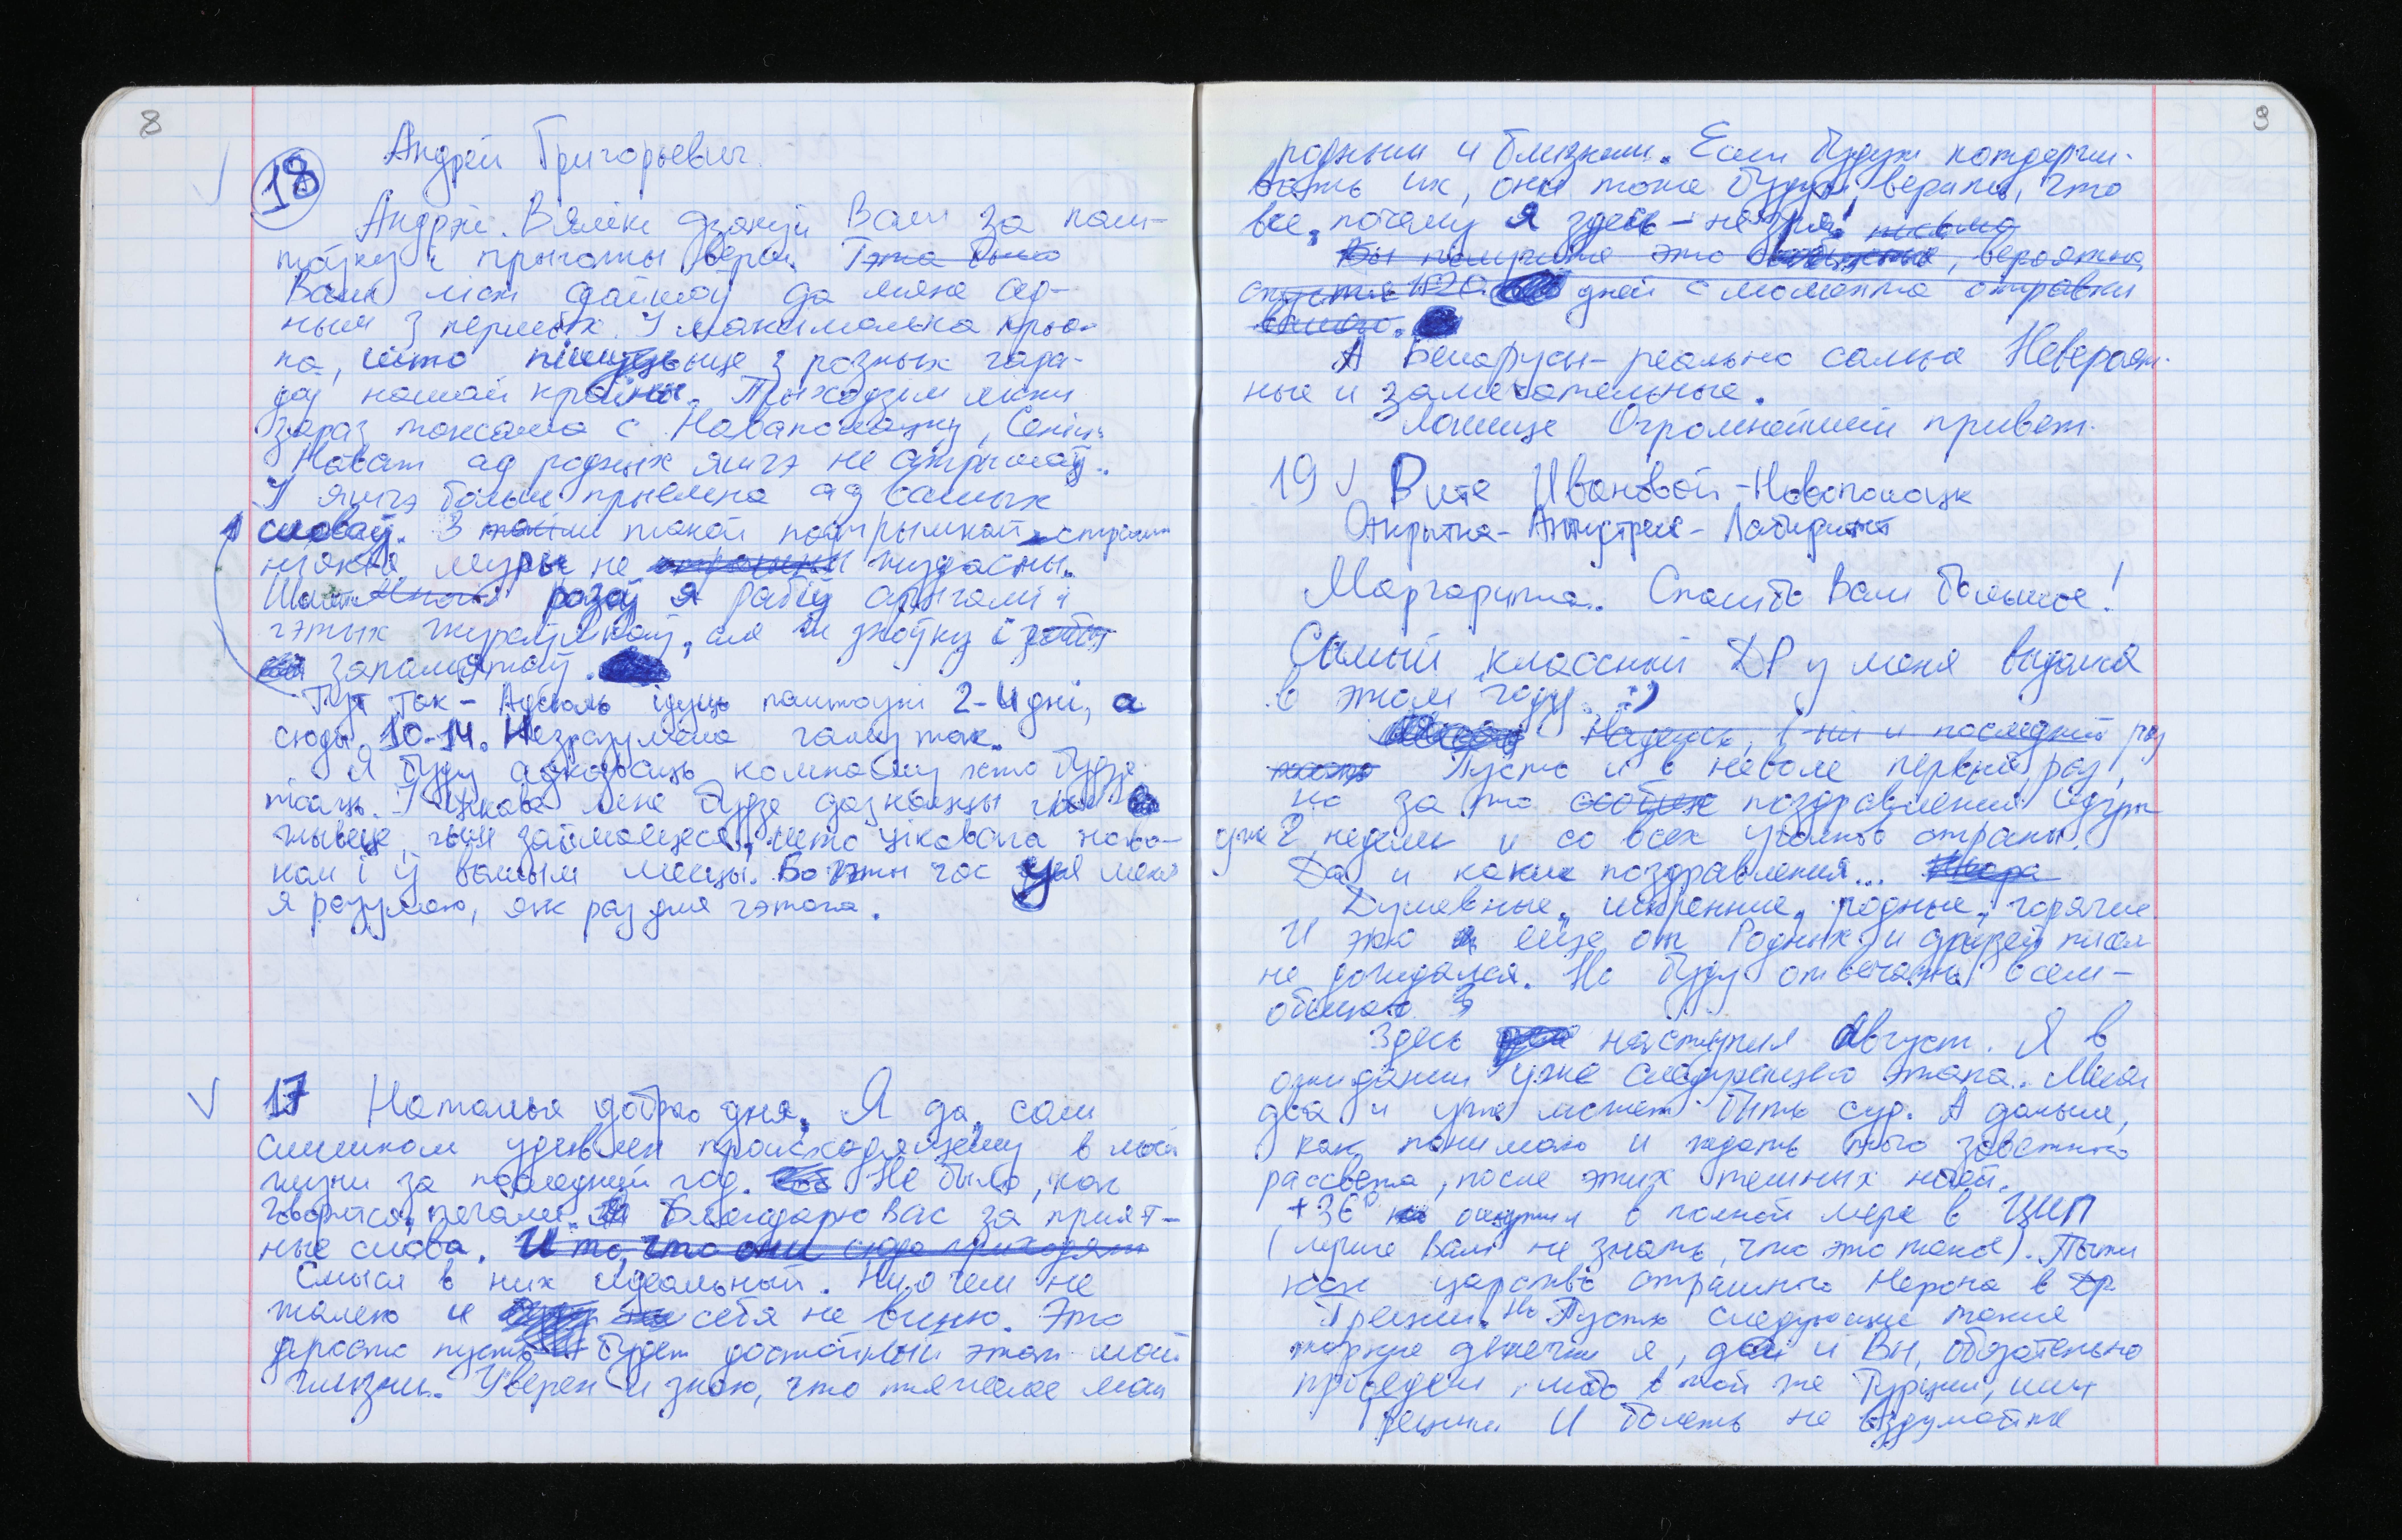 8
18 Андрей Григорьевич.
Андрэй. Вялікі дзякуй Вам за пош-
таўку і прыгожы верш. Гэта было
Ваш ліст дайшоў да мяне ад-
ным з першых. І максімальна прые-
на, што пішуць яшце з розных гара-
доў нашай краіны. Прыходзім лісты
зараз таксама с Навапалацку,
Нават ад родных яшчэ не атрымаў.
І яшчэ больш прыемна ад вашых
словаў. З такім такой падтрымкай
ніякія муры не страшны
Шмат разоў я рабіў арыгамі і
гэтых жураўлікаў, але ж зноўку і
запамятаў.
Тут так - Адсюль ідуць паштоўкі 2-4 дні, а
сюды 10-14. Незразумела чаму так.
Я буду адказваць кожнаму хто будзе
пісаць. І цікава мне будзе дазнацца як
жывеце, чым займаецеся, што цікавага нава-
кол і ў вашым месцы. Бо гэты час у мяне
я разумею, як раз для гэтага.
17 Наталья доброго дня. Я да, сам
слишком удивлен происходящему в моей
жизни за последний год. Не было, как
говорится, печали. Благодарю Вас за прият-
ные слова. И то, что они сюда приходят
Смысл в них идеальный. Ни о чем не
жалею и себя не виню. Это
просто пусть будет достойный этап моей
жизни. Уверен и знаю, что тяжелее моим
9
родным и близким. Если будут поддержи-
вать их, они тоже будут верить, что
все, почему я здесь - не зря! письмо
Вы получите это, вероятно,
спустя 15-20 дней с момента отправки
вашего.
А Беларусы - реально самые Невероят-
ные и замечательные.
Лошице Огромнейший привет.
19 Вите Ивановой - Новополоцк
Открытка - Антистресс - Лабиринт
Маргарита. Спасибо Вам большое!
Самый классный ДР у меня выдался
в этом году. :)
Надеюсь, и последний раз
Пусть и в неволе первый раз,
но за то поздравления идут
уже 2 недели и со всех уголков страны.
Да и какие поздравления...
Душевные, искренние, родные, горячие
И это я еще от Родных и друзей писем
не дождался. Но буду отвечать всем -
обещаю
Здесь наступил Август. Я в
ожидании уже следующего этапа. Месяц
два и уже может быть суд. А дальше,
как понимаю и ждать того заветного
рассвета, после этих темных ночей.
+36° ощутил в полной мере в ЦИП
(лучше Вам не знать, что это такое). Пытки
как царство страшного Нерона в Др
Греции. Но Пусть следующие такие
жаркие денечки я, да и Вы, обязательно
проведем, либо в той же Турции, или
Греции И болеть не вздумайте